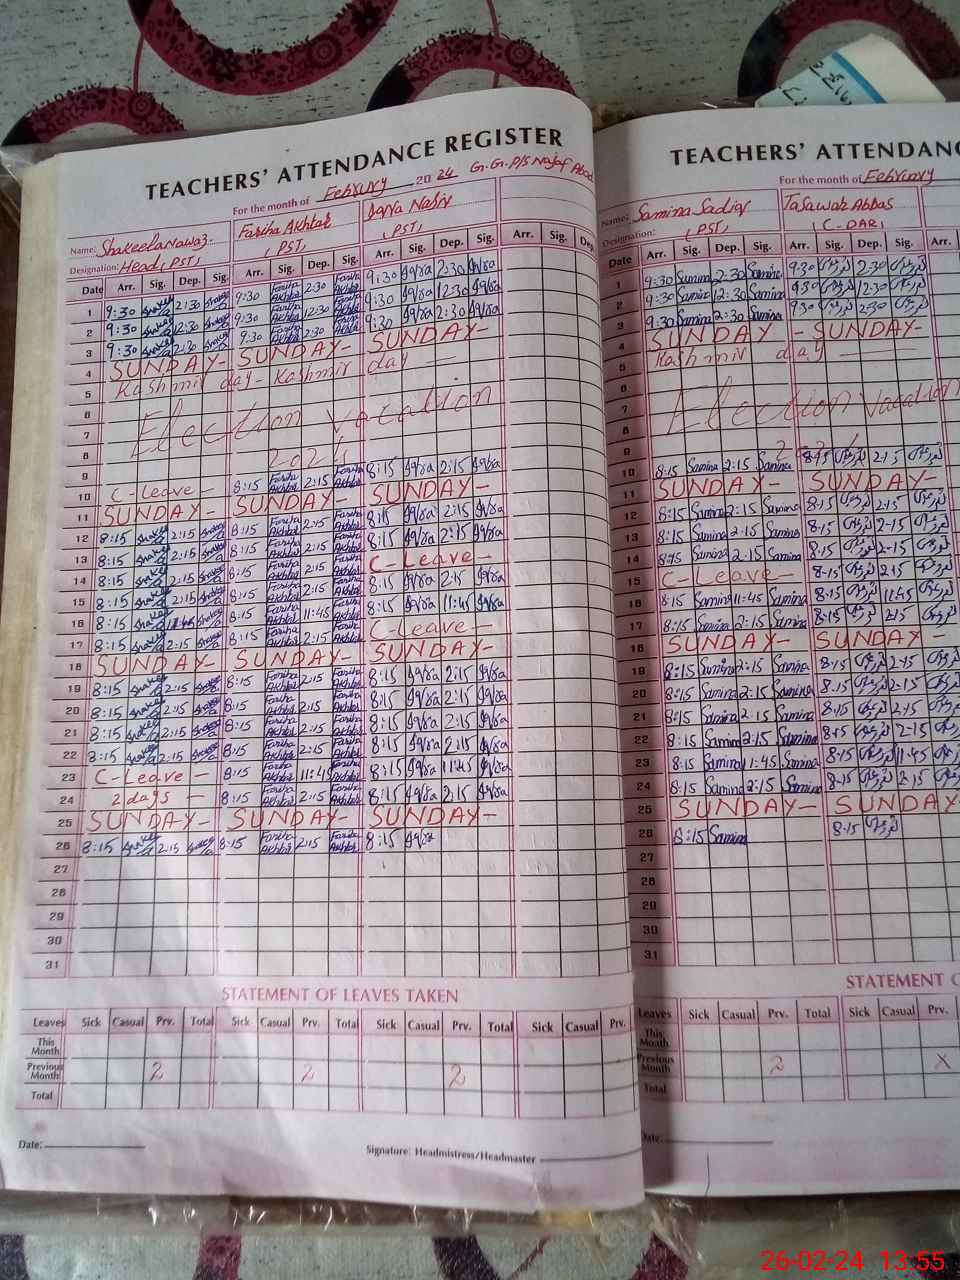 TEACHERS' ATTENDANCE REGISTER
For the month of February 2024 G.G.P/S Najaf Abad
Name: Shakeela Nawaz. Fariha Akhtar Iqra Nabir
Designation: Head (PST) (PST) (PST)
Date Arr. Sig. Dep. Sig. Arr. Sig. Dep. Sig. Arr. Sig. Dep. Sig. Arr. Sig. Dep.
1 9:30 2:30 9:30 Fariha Akhtar 2:30 Fariha Akhtar 9:30 Iqra 2:30 Iqra
2 9:30 12:30 9:30 Fariha Akhtar 12:30 Fariha Akhtar 9:30 Iqra 12:30 Iqra
3 9:30 2:30 9:30 Fariha Akhtar 2:30 Fariha Akhtar 9:30 Iqra 2:30 Iqra
4 SUNDAY- SUNDAY- SUNDAY-
5 Kashmir day- Kashmir day
6
7 Election vacation
8 2024
9
10 C-Leave- 8:15 Fariha Akhtar 2:15 Fariha Akhtar 8:15 Iqra 2:15 Iqra
11 SUNDAY- SUNDAY SUNDAY
12 8:15 2:15 8:15 Fariha Akhtar 2:15 Fariha Akhtar 8:15 Iqra 2:15 Iqra
13 8:15 2:15 8:15 Fariha Akhtar 2:15 Fariha Akhtar 8:15 Iqra 2:15 Iqra
14 8:15 2:15 8:15 Fariha Akhtar 2:15 Fariha Akhtar C-Leave-
15 8:15 2:15 8:15 Fariha Akhtar 2:15 Fariha Akhtar 8:15 Iqra 2:15 Iqra
16 8:15 11:45 8:15 Fariha Akhtar 11:45 Fariha Akhtar 8:15 Iqra 11:45 Iqra
17 8:15 2:15 8:15 Fariha Akhtar 2:15 Fariha Akhtar C-Leave-
18 SUNDAY- SUNDAY- SUNDAY-
19 8:15 2:15 8:15 Fariha Akhtar 2:15 Fariha Akhtar 8:15 Iqra 2:15 Iqra
20 8:15 2:15 8:15 Fariha Akhtar 2:15 Fariha Akhtar 8:15 Iqra 2:15 Iqra
21 8:15 2:15 8:15 Fariha Akhtar 2:15 Fariha Akhtar 8:15 Iqra 2:15 Iqra
22 8:15 2:15 8:15 Fariha Akhtar 2:15 Fariha Akhtar 8:15 Iqra 2:15 Iqra
23 C-Leave- 8:15 Fariha Akhtar 11:45 Fariha Akhtar 8:15 Iqra 11:45 Iqra
24 2 days- 8:15 Fariha Akhtar 2:15 Fariha Akhtar 8:15 Iqra 2:15 Iqra
25 SUNDAY- SUNDAY- SUNDAY-
26 8:15 2:15 8:15 Fariha Akhtar 2:15 Fariha Akhtar 8:15 Iqra
27
28
29
30
31
STATEMENT OF LEAVES TAKEN
Leaves Sick Casual Prv. Total Sick Casual Prv. Total Sick Casual Prv. Total Sick Casual Prv.
This Month
Previous Month 2 2 2
Total
Date:
Signature: Headmistress/Headmaster
TEACHERS' ATTENDANC
For the month of February
Name: Samina Sadiq Tasawar Abbas
Designation: (PST) (C-DAR)
Date Arr. Sig. Dep. Sig. Arr. Sig. Dep. Sig. Arr.
1 9:30 Samina 2:30 Samina 9:30 2:30
2 9:30 Samina 12:30 Samina 9:30 12:30
3 9:30 Samina 2:30 Samina 9:30 2:30
4 SUNDAY - SUNDAY-
5 Kashmir day
6
7 Election vacation
8
9 2
10 8:15 Samina 2:15 Samina 8:15 2:15
11 SUNDAY- SUNDAY-
12 8:15 Samina 2:15 Samina 8:15 2:15
13 8:15 Samina 2:15 Samina 8:15 2-15
14 8:15 Samina 2:15 Samina 8:15 2-15
15 C-Leave- 8-15 2:15
16 8:15 Samina 11:45 Samina 8:15 11:45
17 8:15 Samina 2:15 Samina 8:15 2:15
18 SUNDAY- SUNDAY -
19 8:15 Samina 2:15 Samina 8:15 2-15
20 8:15 Samina 2:15 Samina 8:15 2-15
21 8:15 Samina 2:15 Samina 8:15 2:15
22 8:15 Samina 2:15 Samina 8:15 2-15
23 8:15 Samina 11:45 Samina 8:15 11:45
24 8:15 Samina 2:15 Samina 8-15 2:15
25 SUNDAY- SUNDAY
26 8:15 Samina 8-15
27
28
29
30
31
STATEMENT O
Leaves Sick Casual Prv. Total Sick Casual Prv.
This Month
Previous Month 2 X
Total
Date:
26-02-24 13:55